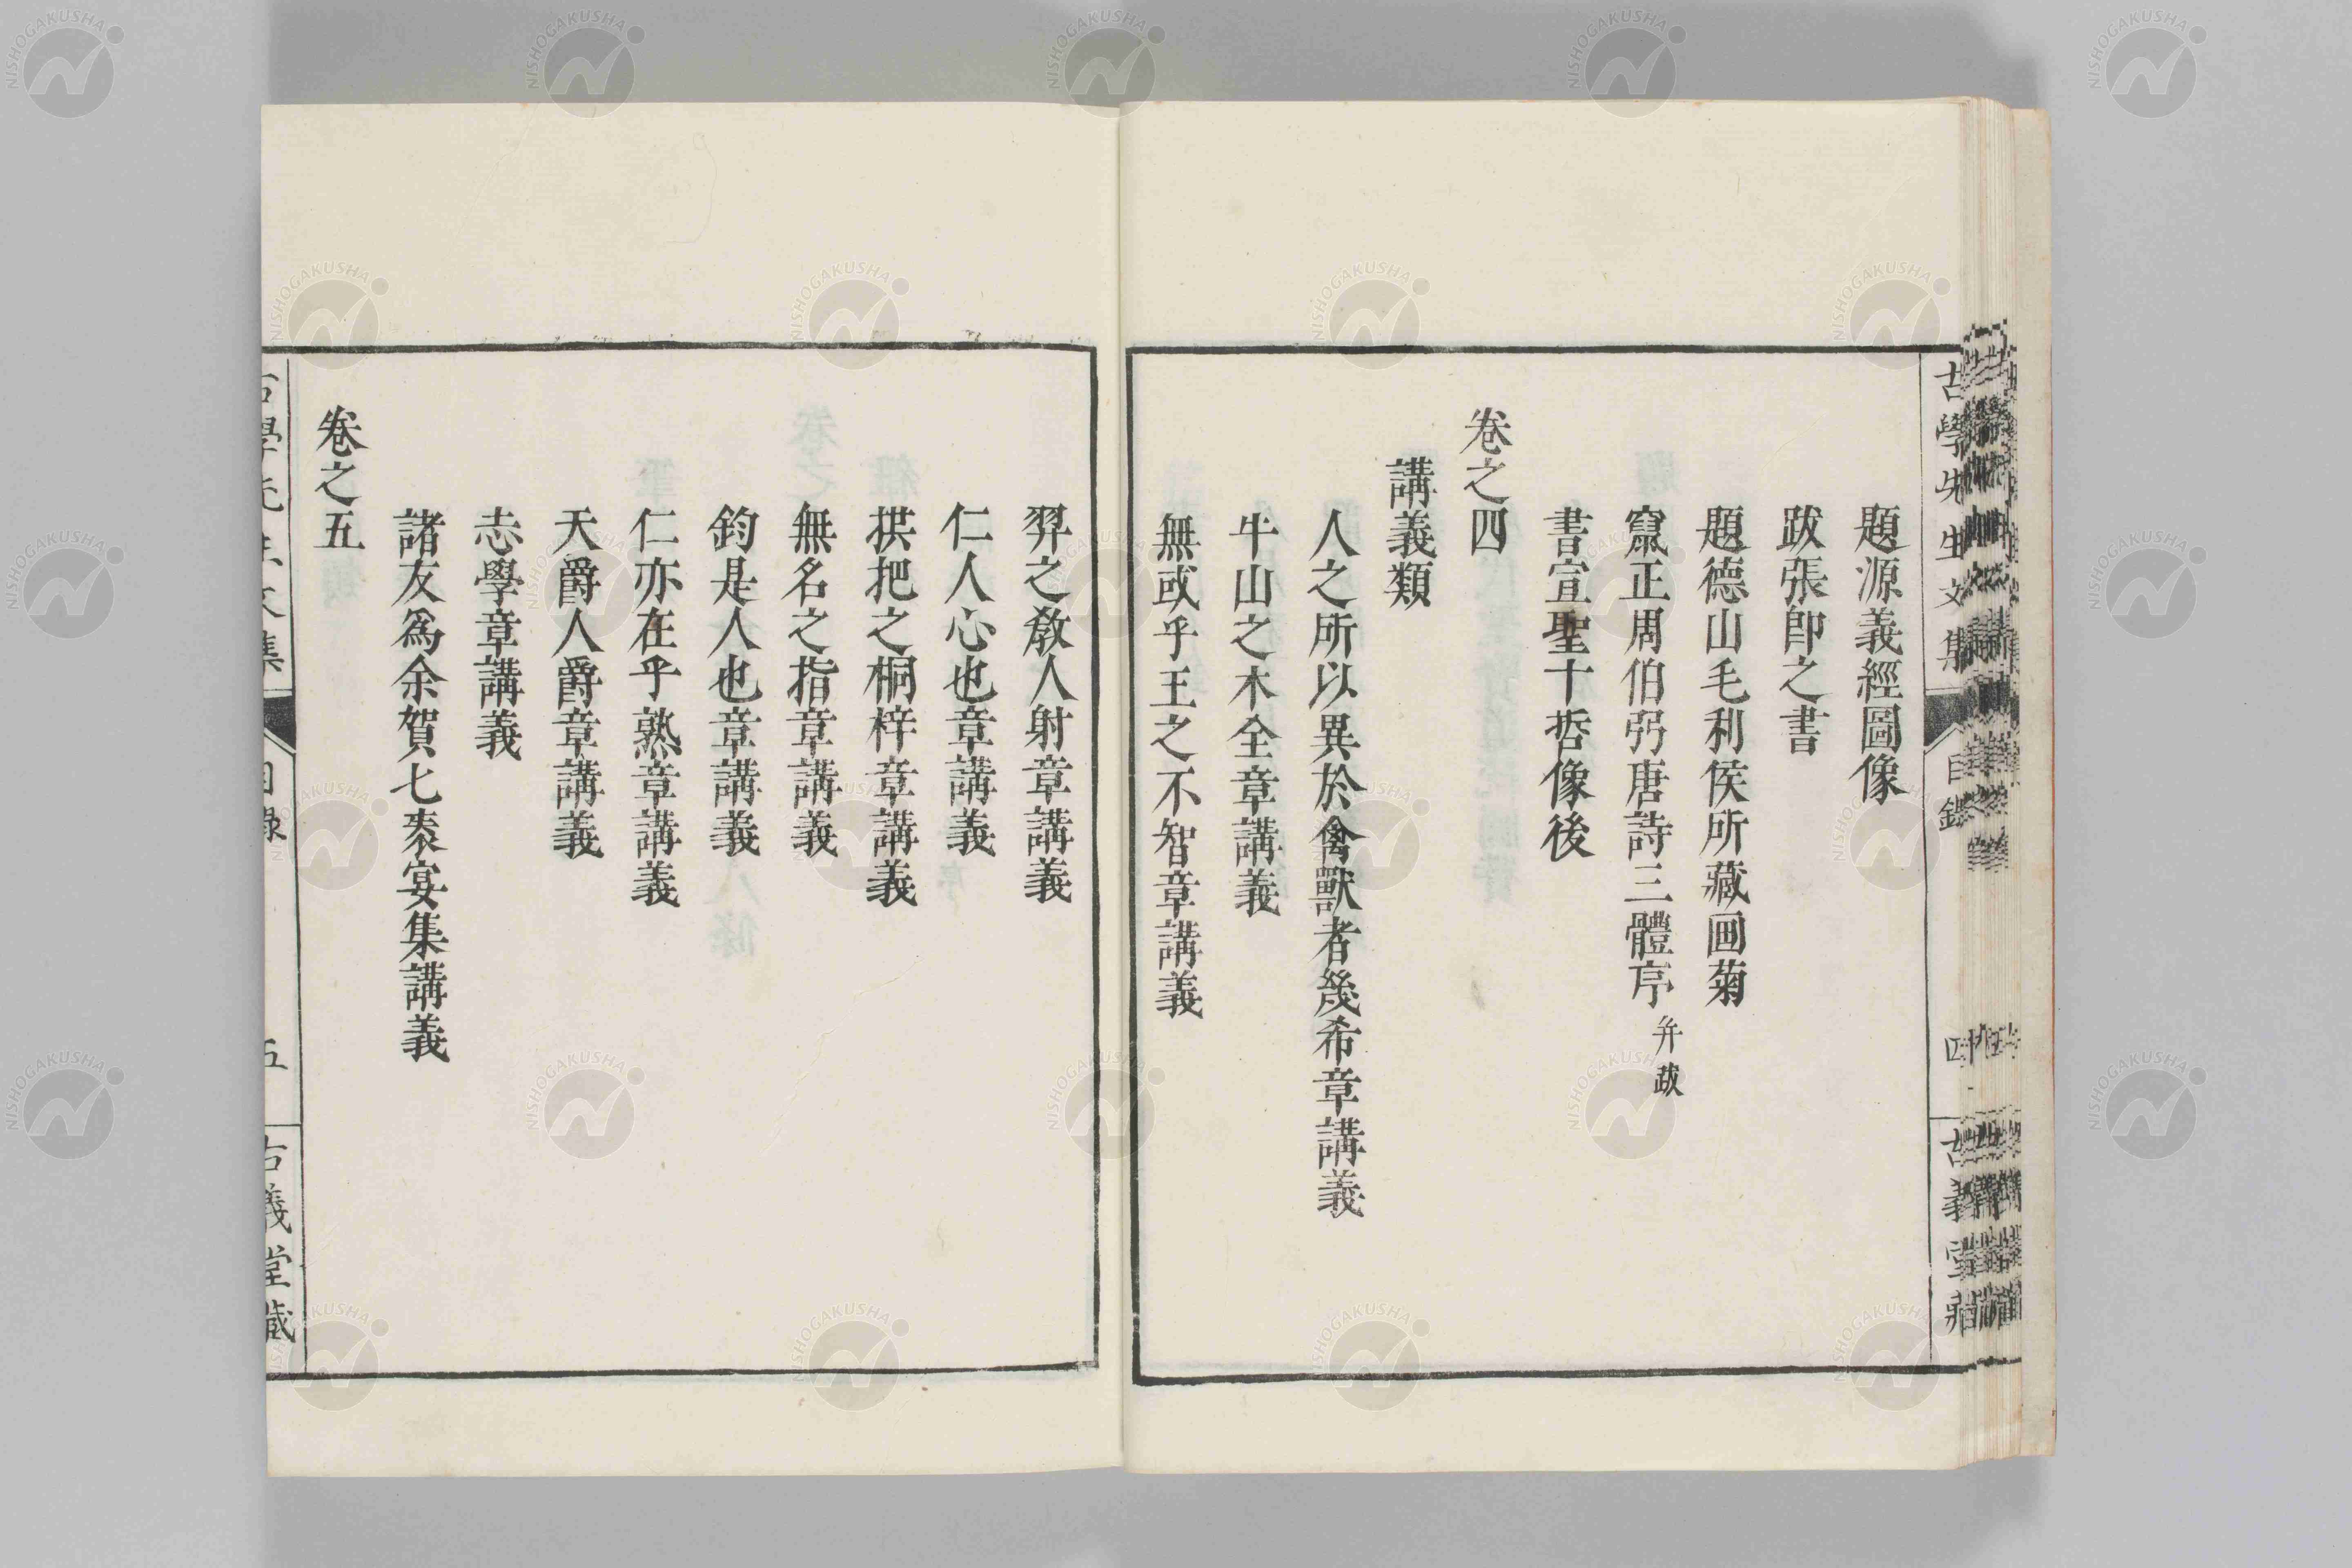 題源義經圖像
跋張卽之書
題德山毛利侯所藏画菊
竄正周伯弜唐詩三體序 并跋
書宣聖十哲像後
卷之四
講義類
人之所以異於禽獸者幾希章講義
牛山之木全章講義
無或乎王之不智章講義
古學先生文集
目錄
四
古義堂藏
羿之敎人射章講義
仁人心也章講義
拱把之桐梓章講義
無名之指章講義
鈞是人也章講義
仁亦在乎熟章講義
天爵人爵章講義
志學章講義
諸友爲余賀七袠宴集講義
卷之五
古學先生文集
目錄
五
古義堂藏
NISHOGAKUSHA